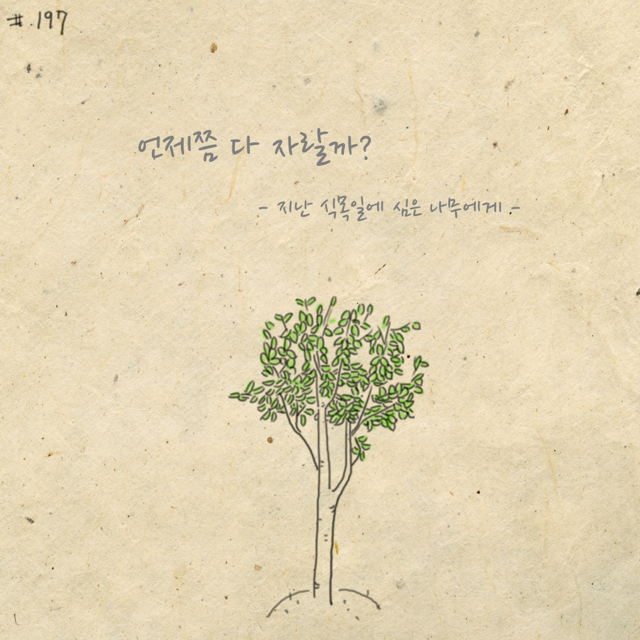 #.197
언제쯤 다 자랄까?
- 지난 식목일에 심은 나무에게 -